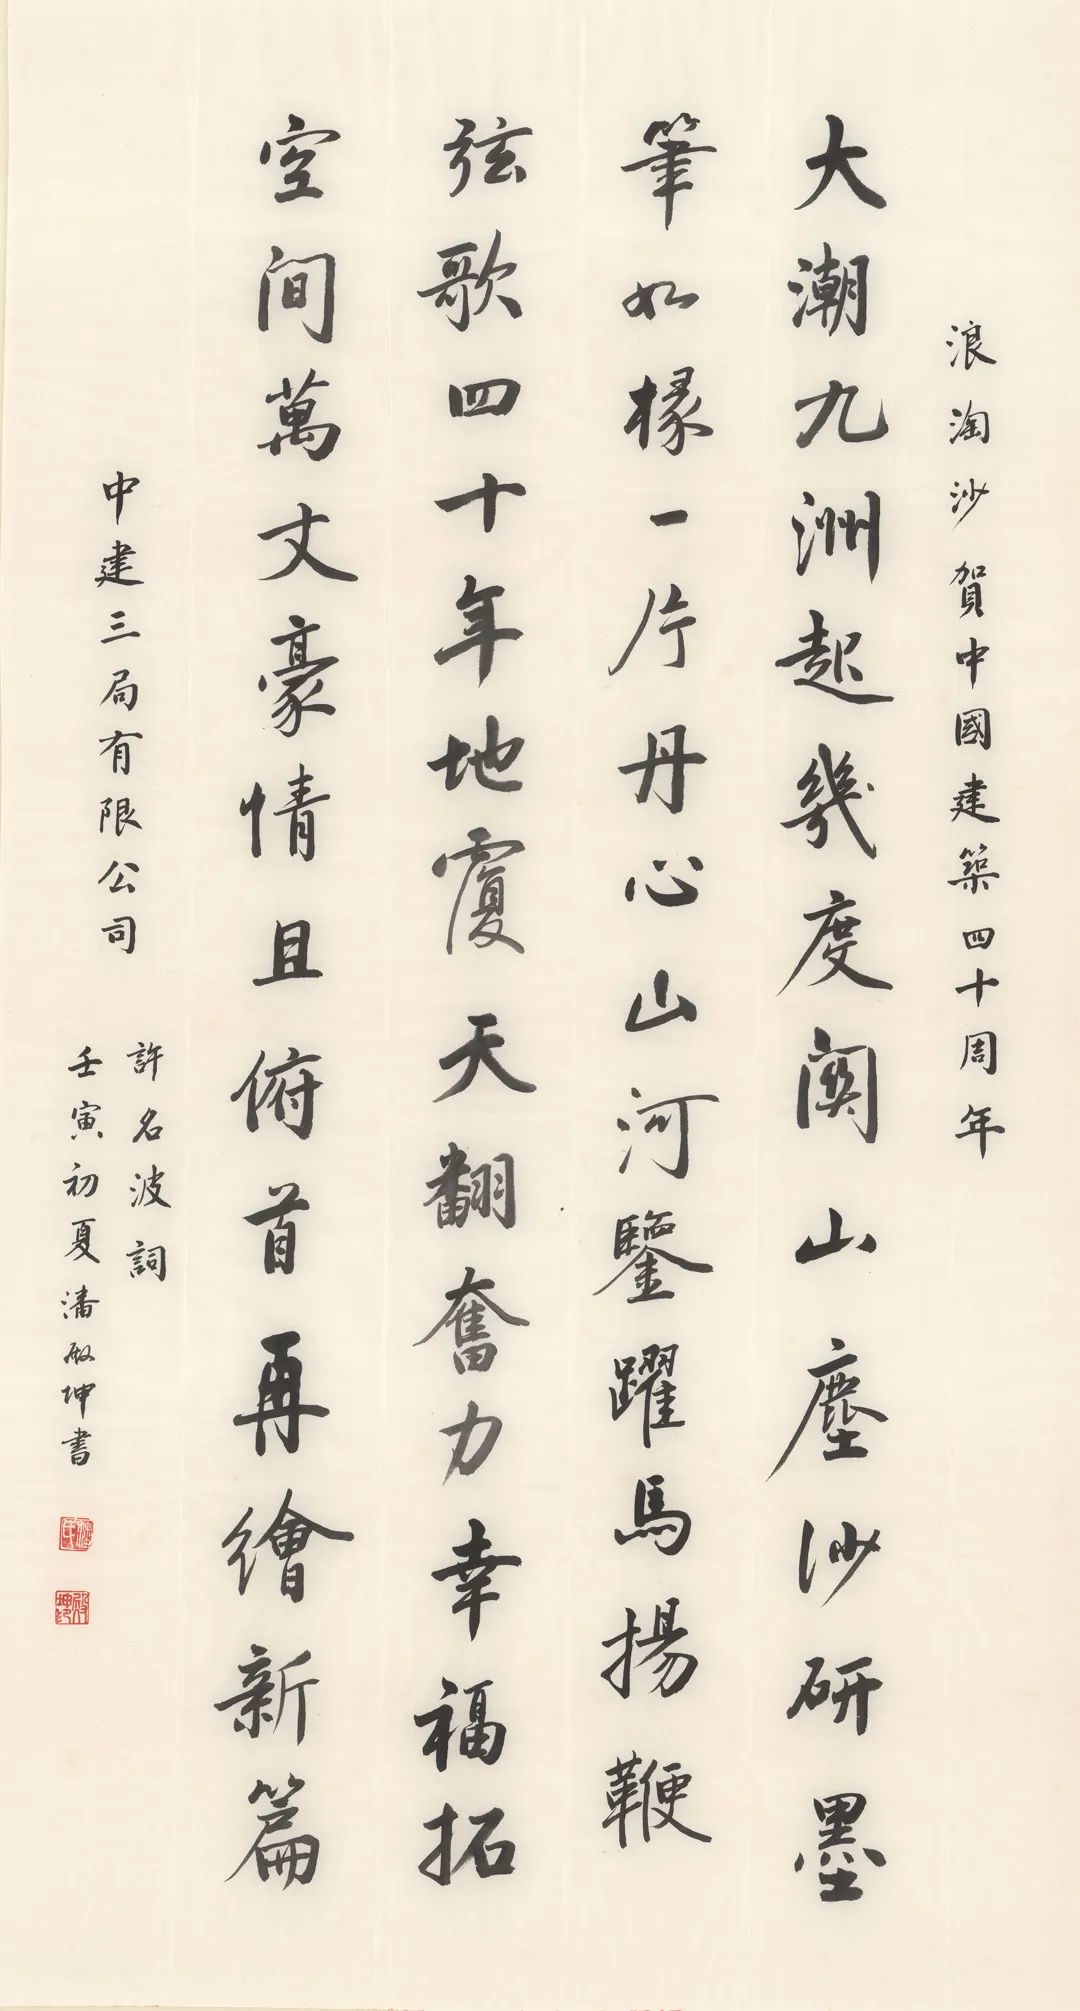 浪淘沙賀中國建築四十周年
大潮九洲起幾度関山塵沙研墨
筆如椽一片丹心山河鑒躍馬揚鞭
弦歌四十年地覆天翻奮力幸福拓
空间萬丈豪情且俯首再繪新篇
中建三局有限公司
許名波詞
壬寅初夏潘殷坤書